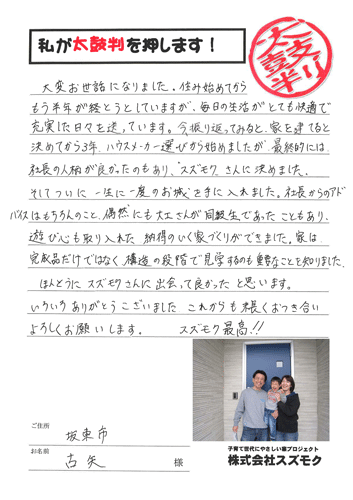 私が太鼓判を押します！
太鼓判
大変お世話になりました。住み始めてから
もう半年が経とうとしていますが、毎日の生活がとても快適で
充実した日々を送っています。今、振り返ってみると、家を建てると
決めてから3年、ハウスメーカー選びから始めましたが、最終的には、
社長の人柄が良かったのもあり、"スズモク"さんに決めました。
そしてついに一生に一度のお城を手に入れました。社長からのアド
バイスはもちろんのこと、偶然にも大工さんが同級生であったこともあり、
遊び心も取り入れた納得のいく家づくりができました。家は
完成品だけではなく、構造の段階で見学するのも重要なことを知りました。
ほんとうにスズモクさんに出会って良かったと思います。
いろいろありがとうございました これからも末長くおつき合い
よろしくお願いします。 スズモク最高!!
ご住所
坂東市
お名前
古矢 様
子育て世代にやさしい家プロジェクト
株式会社スズモク